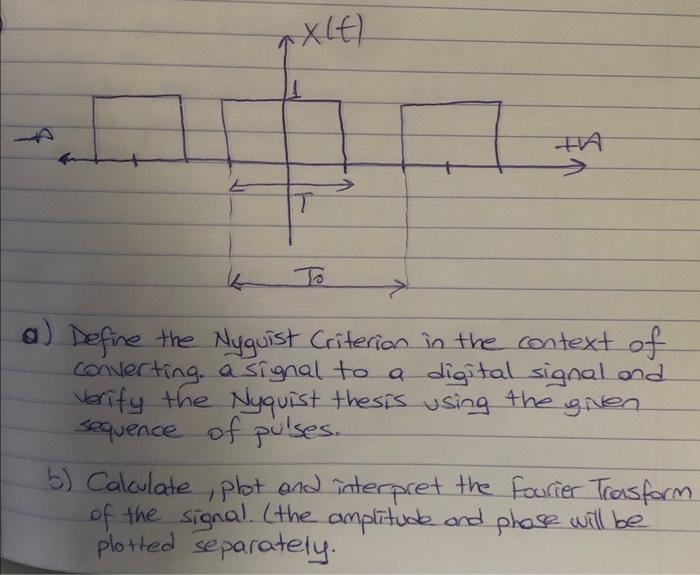 x(t)
1
-A
+A
T
To
a) Define the Nyquist Criterion in the context of
converting. a signal to a digital signal and
verify the Nyquist thesis using the given
sequence of pulses.
b) Calculate, plot and interpret the Fourier Trasform
of the signal. (the amplitude and phase will be
plotted separately.